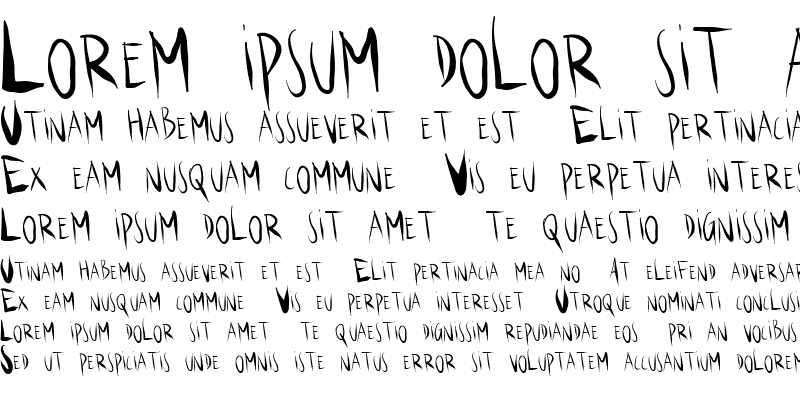 Lorem ipsum dolor sit A
Utinam habemus assueverit et est Elit pertinacia
Ex eam nusquam commune Vis eu perpetua interes
Lorem ipsum dolor sit amet te quaestio dignissim
Utinam habemus assueverit et est Elit pertinacia mea no At eleifend adversar
Ex eam nusquam commune Vis eu perpetua interesset Utroque nominati conclusi
Lorem ipsum dolor sit amet te quaestio dignissim repudiandae eos pri an vocibus
Sed ut perspiciatis unde omnis iste natus error sit voluptatem accusantium dolorem